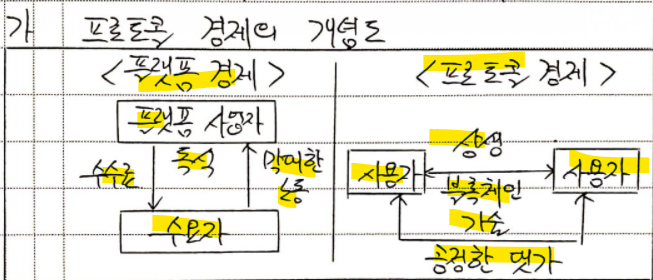 가 프로토콜 경제의 개념도
<플랫폼 경제>
플랫폼 사업자
수수료 독식 막대한 노동
수요자
<프로토콜 경제>
상생
사용자 사용자
블록체인
기술
공정한 댓가